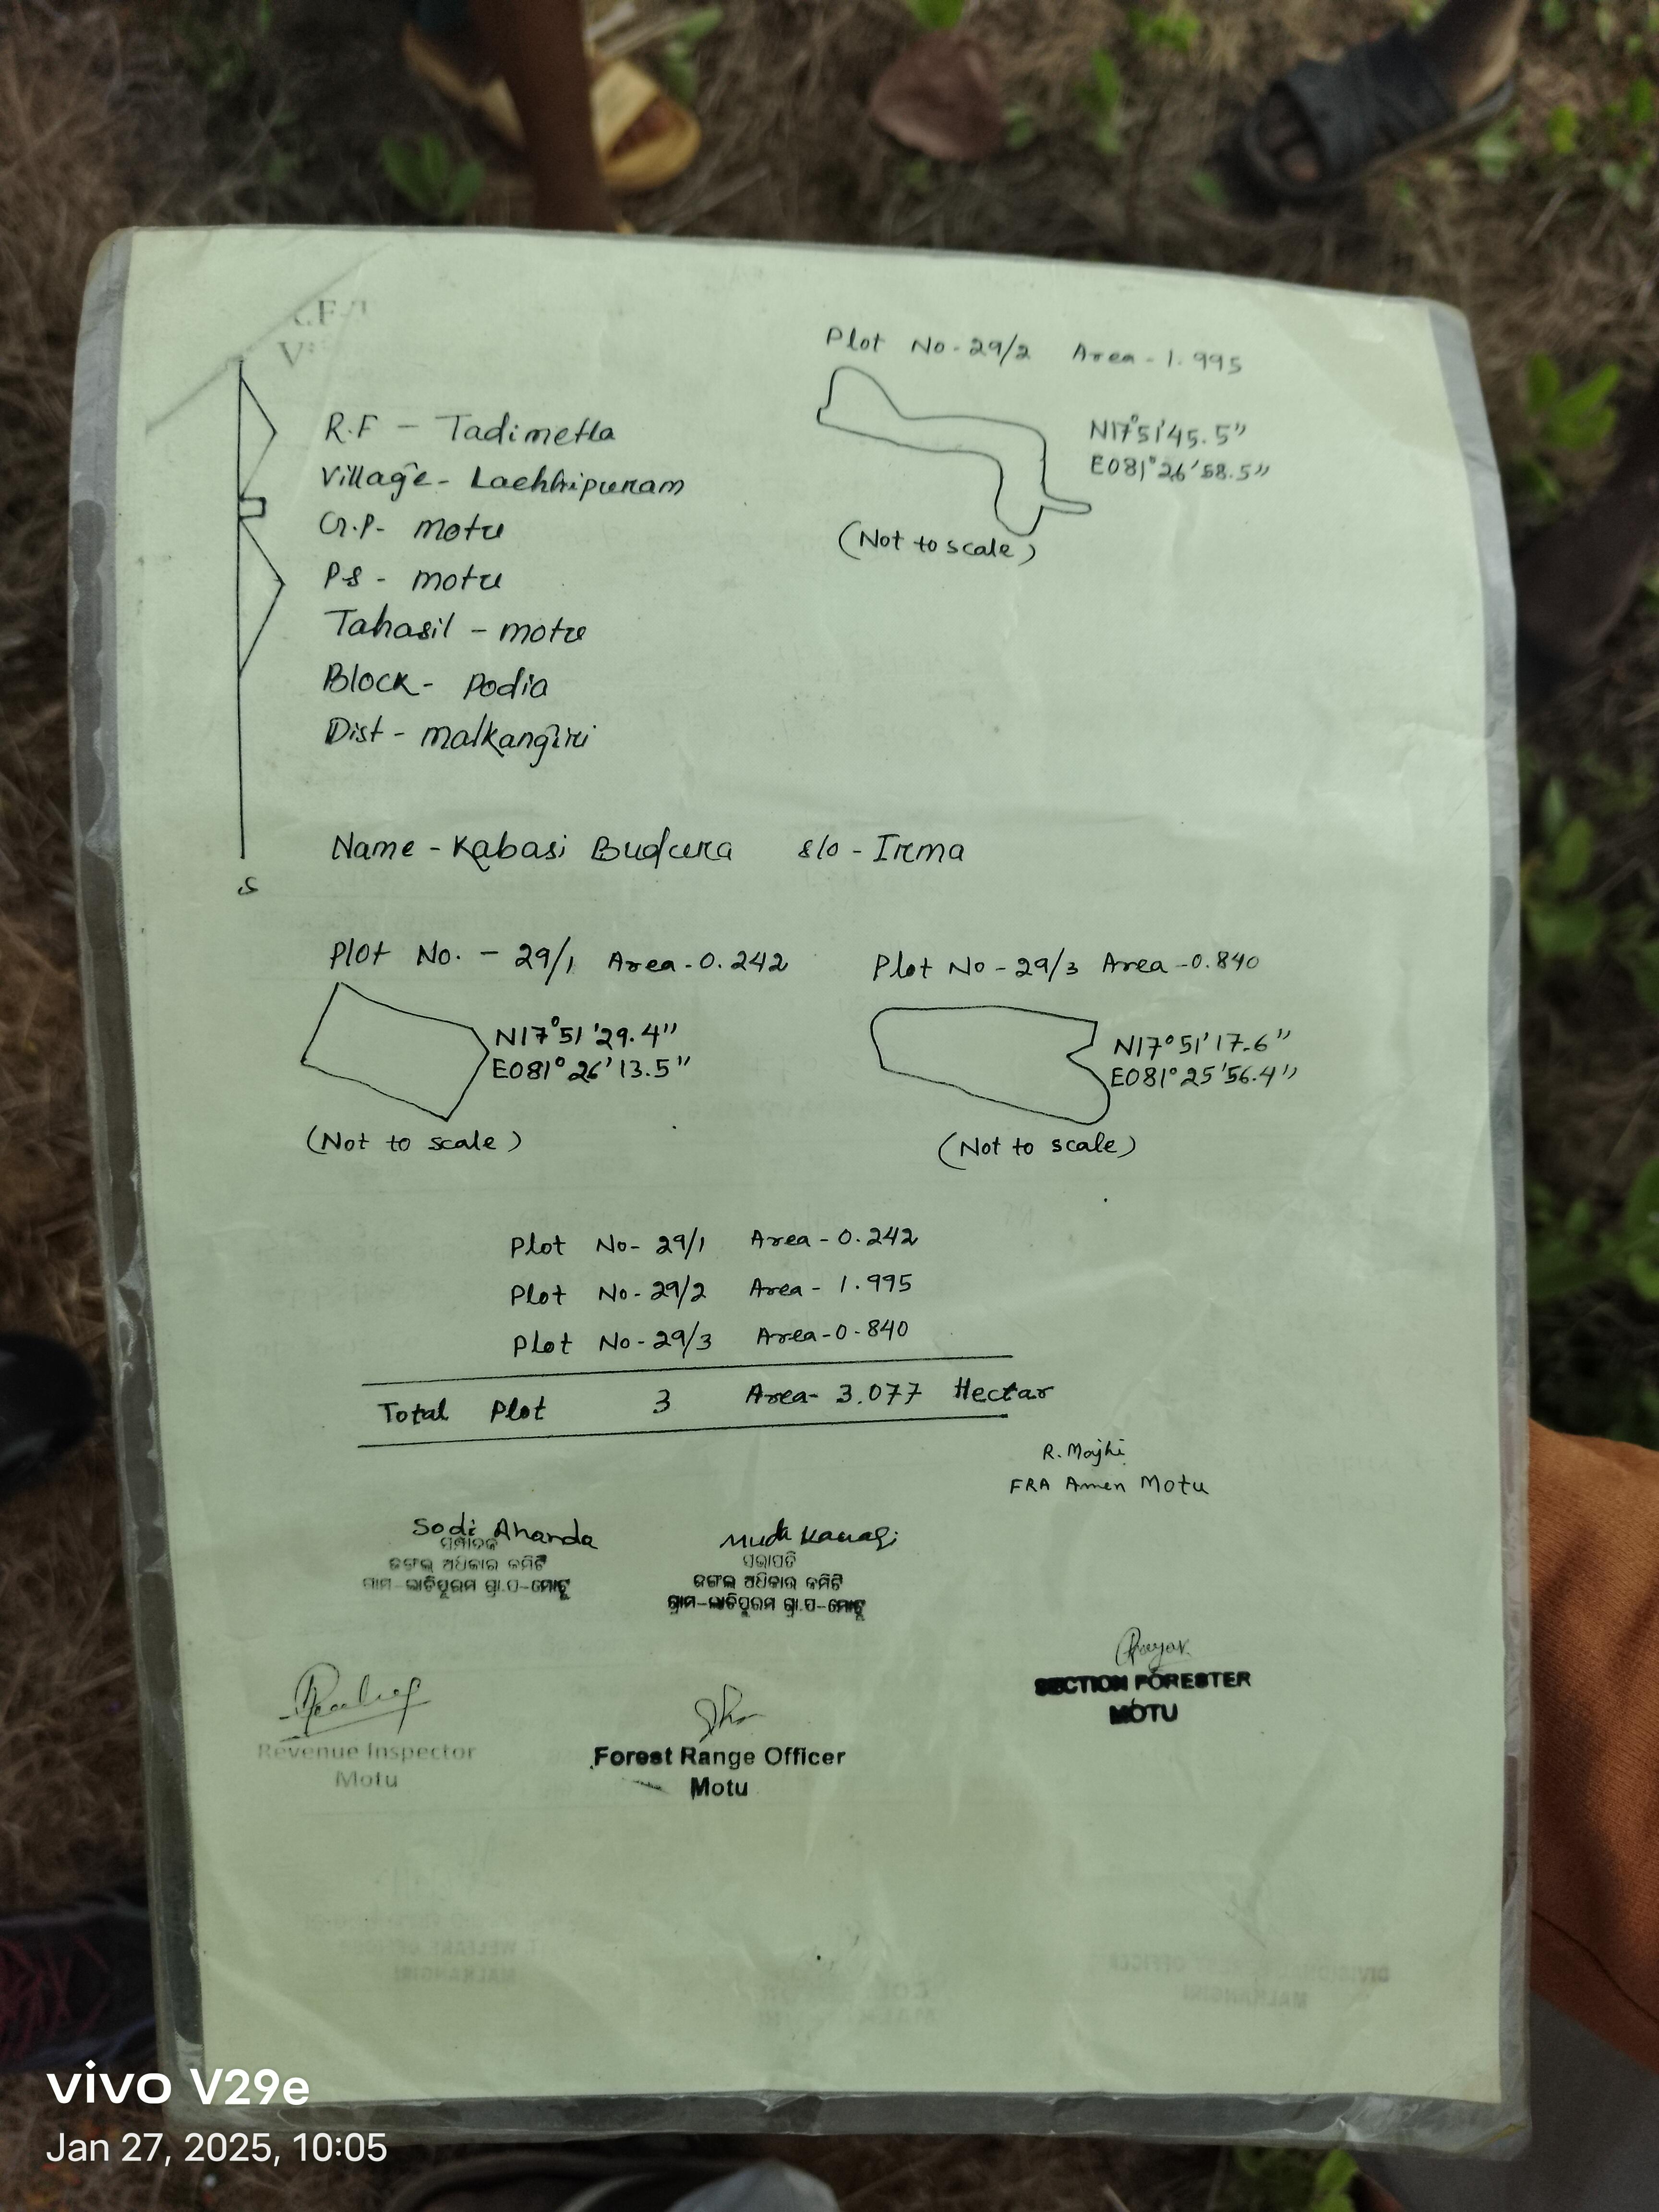 Plot No-29/2 Area-1.995
N17°51'45.5"
E081°26'58.5"
(Not to scale)
R.F - Tadimetla
Village- Lachhipuram
G.P- Motu
PS- Motu
Tahasil - Motu
Block- Podia
Dist- Malkangiri
S
Name - Kabasi Budura S/o - Irma
Plot No. - 29/1 Area-0.242
N17°51'29.4"
E081°26'13.5"
(Not to scale)
Plot No-29/3 Area-0.840
N17°51'17.6"
E081°25'56.4"
(Not to scale)
Plot No- 29/1 Area-0.242
Plot No-29/2 Area- 1.995
Plot No-29/3 Area-0.840
Total Plot 3 Area- 3.077 Hectar
R. Majhi
FRA Amen Motu
Sodi Ananda
ସମ୍ପାଦକ
ଜଙ୍ଗଲ ଅଧିକାର କମିଟି
ଗ୍ରାମ-ଲାଚିପୁରମ ଗ୍ରା.ପ-ମୋଟୁ
Muda
ସଭାପତି
ଜଙ୍ଗଲ ଅଧିକାର କମିଟି
ଗ୍ରାମ-ଲାଚିପୁରମ ଗ୍ରା.ପ-ମୋଟୁ
SECTION FORESTER
MOTU
Revenue Inspector
Motu
Forest Range Officer
Motu
vivo V29e
Jan 27, 2025, 10:05